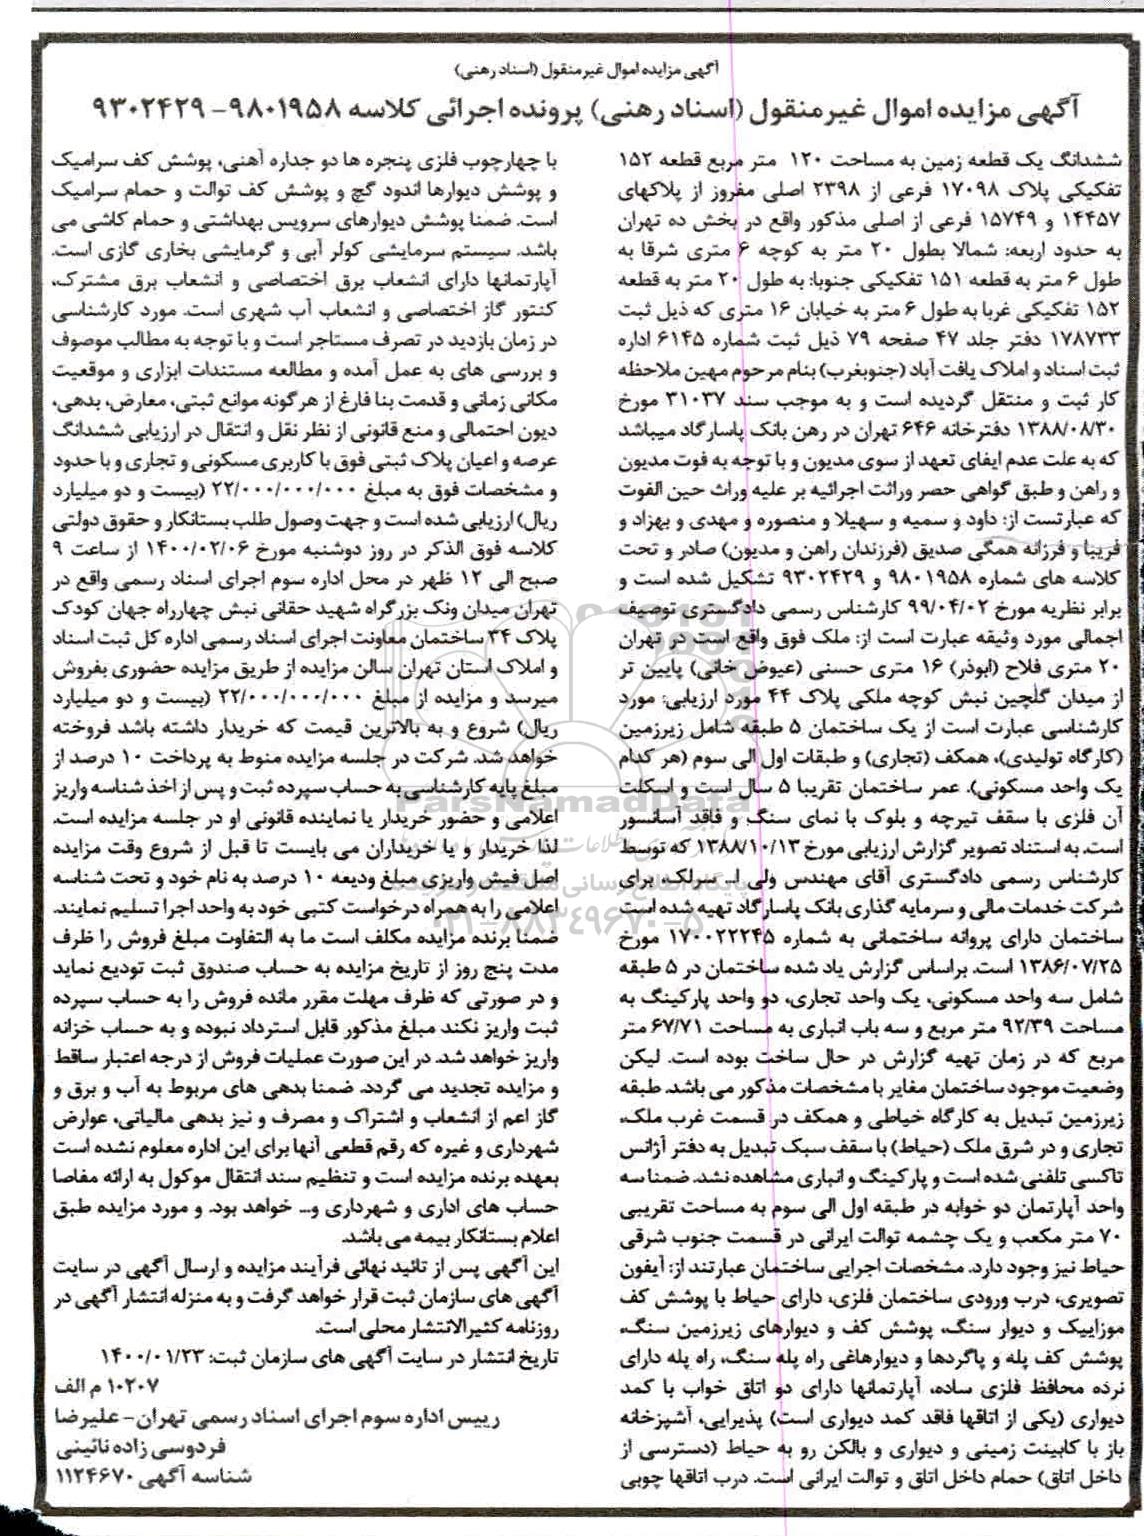 آگهی مزایده اموال غیرمنقول (اسناد رهنی)
آگهی مزایده اموال غیرمنقول (اسناد رهنی) پرونده اجرائی کلاسه ۹۸۰۱۹۵۸- ۹۳۰۲۴۲۹
ششدانگ یک قطعه زمین به مساحت ۱۲۰ متر مربع قطعه ۱۵۲
تفکیکی پلاک ۱۷۰۹۸ فرعی از ۲۳۹۸ اصلی مفروز از پلاکهای
۱۴۴۵۷ و ۱۵۷۴۹ فرعی از اصلی مذکور واقع در بخش ده تهران
به حدود اربعه: شمالا بطول ۲۰ متر به کوچه ۶ متری شرقا به
طول ۶ متر به قطعه ۱۵۱ تفکیکی جنوبا: به طول ۲۰ متر به قطعه
۱۵۲ تفکیکی غربا به طول ۶ متر به خیابان ۱۶ متری که ذیل ثبت
۱۷۸۷۳۳ دفتر جلد ۴۷ صفحه ۷۹ ذیل ثبت شماره ۶۱۴۵ اداره
ثبت اسناد و املاک یافت آباد (جنوبغرب) بنام مرحوم مهین ملاحظه
کار ثبت و منتقل گردیده است و به موجب سند ۳۱۰۳۷ مورخ
۱۳۸۸/۰۸/۳۰ دفترخانه ۶۴۶ تهران در رهن بانک پاسارگاد میباشد
که به علت عدم ایفای تعهد از سوی مدیون و با توجه به فوت مدیون
و راهن و طبق گواهی حصر وراثت اجرائیه بر علیه وراث حین الفوت
که عبارتست از: داود و سمیه و سهیلا و منصوره و مهدی و بهزاد و
فریبا و فرزانه همگی صدیق (فرزندان راهن و مدیون) صادر و تحت
کلاسه های شماره ۹۸۰۱۹۵۸ و ۹۳۰۲۴۲۹ تشکیل شده است و
برابر نظریه مورخ ۹۹/۰۴/۰۲ کارشناس رسمی دادگستری توصیف
اجمالی مورد وثیقه عبارت است از: ملک فوق واقع است در تهران
۲۰ متری فلاح (ابوذر) ۱۶ متری حسنی (عیوض خانی) پایین تر
از میدان گلچین نبش کوچه ملکی پلاک ۴۴ مورد ارزیابی: مورد
کارشناسی عبارت است از یک ساختمان ۵ طبقه شامل زیرزمین
(کارگاه تولیدی)، همکف (تجاری) و طبقات اول الی سوم (هر کدام
یک واحد مسکونی). عمر ساختمان تقریبا ۵ سال است و اسکلت
آن فلزی با سقف تیرچه و بلوک با نمای سنگ و فاقد آسانسور
است. به استناد تصویر گزارش ارزیابی مورخ ۱۳۸۸/۱۰/۱۳ که توسط
کارشناس رسمی دادگستری آقای مهندس ولی ا... سرلک، برای
شرکت خدمات مالی و سرمایه گذاری بانک پاسارگاد تهیه شده است
ساختمان دارای پروانه ساختمانی به شماره ۱۷۰۰۲۲۲۴۵ مورخ
۱۳۸۶/۰۷/۲۵ است. براساس گزارش یاد شده ساختمان در ۵ طبقه
شامل سه واحد مسکونی، یک واحد تجاری، دو واحد پارکینگ به
مساحت ۹۲/۳۹ متر مربع و سه باب انباری به مساحت ۶۷/۷۱ متر
مربع که در زمان تهیه گزارش در حال ساخت بوده است. لیکن
وضعیت موجود ساختمان مغایر با مشخصات مذکور می باشد. طبقه
زیرزمین تبدیل به کارگاه خیاطی و همکف در قسمت غرب ملک،
تجاری و در شرق ملک (حیاط) با سقف سبک تبدیل به دفتر آژانس
تاکسی تلفنی شده است و پارکینگ و انباری مشاهده نشد. ضمنا سه
واحد آپارتمان دو خوابه در طبقه اول الی سوم به مساحت تقریبی
۷۰ متر مکعب و یک چشمه توالت ایرانی در قسمت جنوب شرقی
حیاط نیز وجود دارد. مشخصات اجرایی ساختمان عبارتند از: آیفون
تصویری، درب ورودی ساختمان فلزی، دارای حیاط با پوشش کف
موزاییک و دیوار سنگ، پوشش کف و دیوارهای زیرزمین سنگ،
پوشش کف پله و پاگردها و دیوارهاغی راه پله سنگ، راه پله دارای
نرده محافظ فلزی ساده، آپارتمانها دارای دو اتاق خواب با کمد
دیواری (یکی از اتاقها فاقد کمد دیواری است) پذیرایی، آشپزخانه
باز با کابینت زمینی و دیواری و بالکن رو به حیاط (دسترسی از
داخل اتاق) حمام داخل اتاق و توالت ایرانی است. درب اتاقها چوبی
با چهارچوب فلزی پنجره ها دو جداره آهنی، پوشش کف سرامیک
و پوشش دیوارها اندود گچ و پوشش کف توالت و حمام سرامیک
است. ضمنا پوشش دیوارهای سرویس بهداشتی و حمام کاشی می
باشد. سیستم سرمایشی کولر آبی و گرمایشی بخاری گازی است.
آپارتمانها دارای انشعاب برق اختصاصی و انشعاب برق مشترک،
کنتور گاز اختصاصی و انشعاب آب شهری است. مورد کارشناسی
در زمان بازدید در تصرف مستاجر است و با توجه به مطالب موصوف
و بررسی های به عمل آمده و مطالعه مستندات ابزاری و موقعیت
مکانی زمانی و قدمت بنا فارغ از هرگونه موانع ثبتی، معارض، بدهی،
دیون احتمالی و منع قانونی از نظر نقل و انتقال در ارزیابی ششدانگ
عرصه و اعیان پلاک ثبتی فوق با کاربری مسکونی و تجاری و با حدود
و مشخصات فوق به مبلغ ۲۲/۰۰۰/۰۰۰/۰۰۰ (بیست و دو میلیارد
ریال) ارزیابی شده است و جهت وصول طلب بستانکار و حقوق دولتی
کلاسه فوق الذکر در روز دوشنبه مورخ ۱۴۰۰/۰۲/۰۶ از ساعت ۹
صبح الی ۱۲ ظهر در محل اداره سوم اجرای اسناد رسمی واقع در
تهران میدان ونک بزرگراه شهید حقانی نبش چهارراه جهان کودک
پلاک ۳۴ ساختمان معاونت اجرای اسناد رسمی اداره کل ثبت اسناد
و املاک استان تهران سالن مزایده از طریق مزایده حضوری بفروش
میرسد و مزایده از مبلغ ۲۲/۰۰۰/۰۰۰/۰۰۰ (بیست و دو میلیارد
ریال) شروع و به بالاترین قیمت که خریدار داشته باشد فروخته
خواهد شد. شرکت در جلسه مزایده منوط به پرداخت ۱۰ درصد از
مبلغ پایه کارشناسی به حساب سپرده ثبت و پس از اخذ شناسه واریز
اعلامی و حضور خریدار یا نماینده قانونی او در جلسه مزایده است.
لذا خریدار و یا خریداران می بایست تا قبل از شروع وقت مزایده
اصل فیش واریزی مبلغ ودیعه ۱۰ درصد به نام خود و تحت شناسه
اعلامی را به همراه درخواست کتبی خود به واحد اجرا تسلیم نمایند.
ضمنا برنده مزایده مکلف است ما به التفاوت مبلغ فروش را ظرف
مدت پنج روز از تاریخ مزایده به حساب صندوق ثبت تودیع نماید
و در صورتی که ظرف مهلت مقرر مانده فروش را به حساب سپرده
ثبت واریز نکند مبلغ مذکور قابل استرداد نبوده و به حساب خزانه
واریز خواهد شد. در این صورت عملیات فروش از درجه اعتبار ساقط
و مزایده تجدید می گردد. ضمنا بدهی های مربوط به آب و برق و
گاز اعم از انشعاب و اشتراک و مصرف و نیز بدهی مالیاتی، عوارض
شهرداری و غیره که رقم قطعی آنها برای این اداره معلوم نشده است
بعهده برنده مزایده است و تنظیم سند انتقال موکول به ارائه مفاصا
حساب های اداری و شهرداری و... خواهد بود. و مورد مزایده طبق
اعلام بستانکار بیمه می باشد.
این آگهی پس از تائید نهائی فرآیند مزایده و ارسال آگهی در سایت
آگهی های سازمان ثبت قرار خواهد گرفت و به منزله انتشار آگهی در
روزنامه کثیرالانتشار محلی است.
تاریخ انتشار در سایت آگهی های سازمان ثبت: ۱۴۰۰/۰۱/۲۳
۱۰۲۰۷ م الف
رییس اداره سوم اجرای اسناد رسمی تهران- علیرضا
فردوسی زاده نائینی
شناسه آگهی ۱۱۲۴۶۷۰
ParsNamadData
پایگاه اطلاع رسانی مناقصه و مزایده
۰۲۱-۸۸۳۴۹۶۷۰-۵